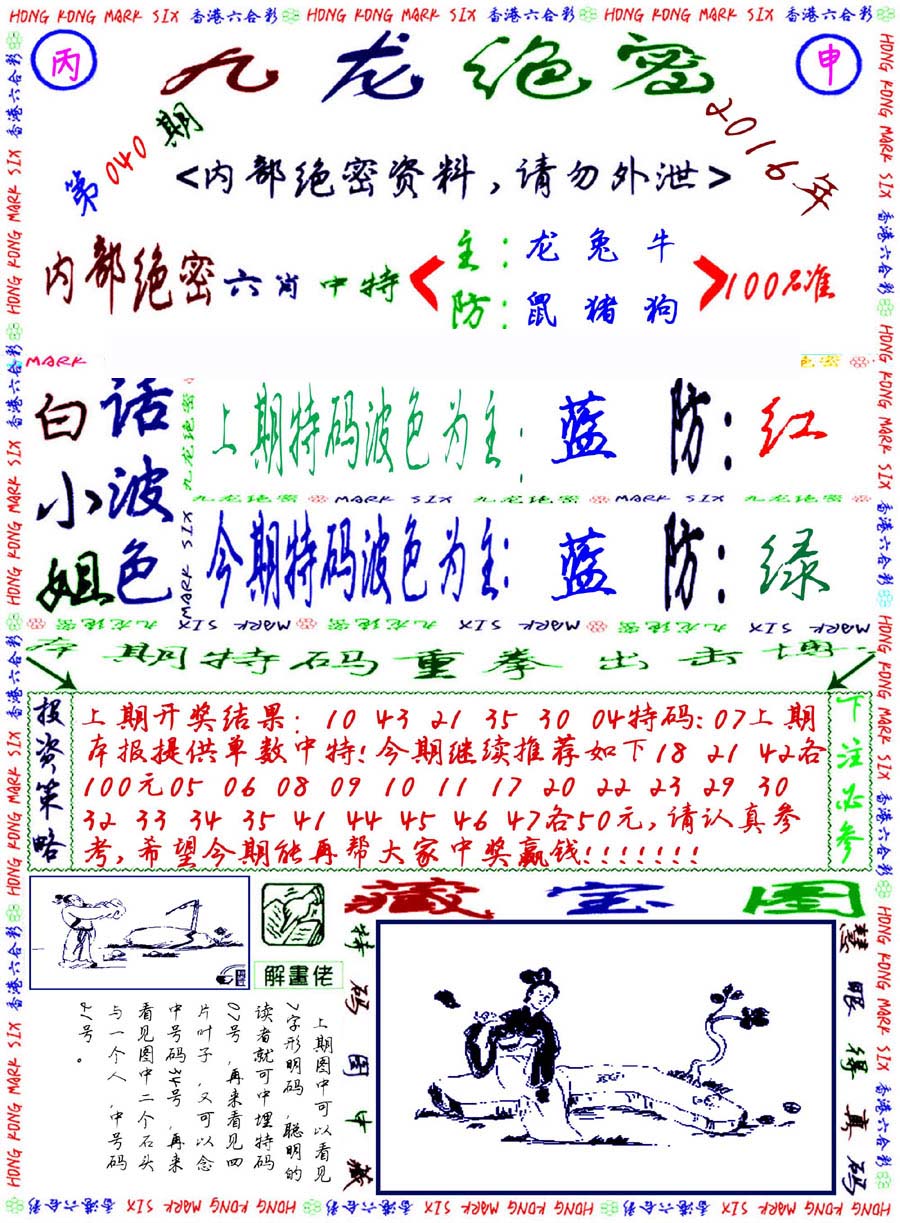 HONG KONG MARK SIX 香港六合彩 HONG KONG MARK SIX 香港六合彩 HONG KONG MARK SIX 香港六合彩
丙
九龙绝密
申
第040期
2016年
<内部绝密资料,请勿外泄>
内部绝密六肖中特
主:龙兔牛
防:鼠猪狗
100%准
MARK
白话
小波
姐色
上期特码波色为主:蓝 防:红
九龙绝密 MARK SIX 九龙绝密 MARK SIX 九龙绝密
今期特码波色为主:蓝 防:绿
MARK SIX 九龙绝密 MARK SIX 九龙绝密 MARK SIX 九龙绝密 MARK SIX
期特码重拳出击
投资策略
上期开奖结果: 10 43 21 35 30 04特码:07上期
本报提供单数中特!今期继续推荐如下18 21 42各
100元05 06 08 09 10 11 17 20 22 23 29 30
32 33 34 35 41 44 45 46 47各50元,请认真参
考,希望今期能再帮大家中奖赢钱!!!!!!!
下注必参
藏宝图
解畫佬
上期图中可以看见
7字形明码,聪明的
读者就可中埋特码
07号,再来看见四
片叶子,又可以念
中号码34号,再来
看见图中二个石头
与一个人,中号码
21号。
特码图中藏
慧眼得真码
HONG KONG MARK SIX 香港六合彩 HONG KONG MARK SIX 香港六合彩 HONG KONG MARK SIX